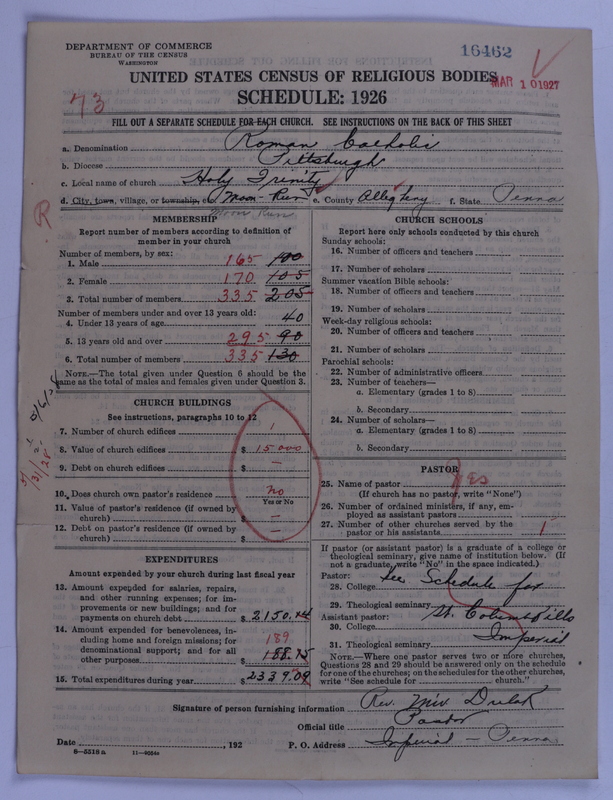 DEPARTMENT OF COMMERCE
BUREAU OF THE CENSUS
WASHINGTON
16462
UNITED STATES CENSUS OF RELIGIOUS BODIES
MAR 10 1927
SCHEDULE: 1926
73
FILL OUT A SEPARATE SCHEDULE FOR EACH CHURCH. SEE INSTRUCTIONS ON THE BACK OF THIS SHEET
a. Denomination Roman Catholic
b. Diocese Pittsburgh
c. Local name of church Holy Trinity
d. City, town, village, or township, etc. Moon-Run e. County Allegheny f. State Penna
R
Moon Run
MEMBERSHIP
Report number of members according to definition of member in your church
Number of members, by sex:
1. Male 165 100
2. Female 170 105
3. Total number of members 335 205
Number of members under and over 13 years old:
4. Under 13 years of age 40
5. 13 years old and over 295 90
6. Total number of members 335 130
NOTE.—The total given under Question 6 should be the same as the total of males and females given under Question 3.
CHURCH BUILDINGS
See instructions, paragraphs 10 to 12
7. Number of church edifices 1
8. Value of church edifices $ 15000
9. Debt on church edifices $ —
10. Does church own pastor's residence No
Yes or No
11. Value of pastor's residence (if owned by church) $ —
12. Debt on pastor's residence (if owned by church) $
EXPENDITURES
Amount expended by your church during last fiscal year
13. Amount expended for salaries, repairs, and other running expenses; for improvements or new buildings; and for payments on church debt $ 2150.44
14. Amount expended for benevolences, including home and foreign missions; for denominational support; and for all other purposes $ 189 188.75
15. Total expenditures during year $ 2339.09
CHURCH SCHOOLS
Report here only schools conducted by this church
Sunday schools:
16. Number of officers and teachers
17. Number of scholars
Summer vacation Bible schools:
18. Number of officers and teachers
19. Number of scholars
Week-day religious schools:
20. Number of officers and teachers
21. Number of scholars
Parochial schools:
22. Number of administrative officers
23. Number of teachers—
a. Elementary (grades 1 to 8)
b. Secondary
24. Number of scholars—
a. Elementary (grades 1 to 8)
b. Secondary
PASTOR
25. Name of pastor Yes
(If church has no pastor, write "None")
26. Number of ordained ministers, if any, employed as assistant pastors
27. Number of other churches served by the pastor or his assistants 1
If pastor (or assistant pastor) is a graduate of a college or theological seminary, give name of institution below. (If not a graduate, write "No" in the space indicated.)
Pastor:
28. College See Schedule for
29. Theological seminary
Assistant pastor: St. Columbkills
30. College
Imperial
31. Theological seminary
NOTE.—Where one pastor serves two or more churches, Questions 28 and 29 should be answered only on the schedule for one of the churches; on the schedules for the other churches, write "See schedule for church."
Signature of person furnishing information Rev. Dulak
Official title Pastor
Date , 192 P. O. Address Imperial - Penna
8—5518a 11—9054a